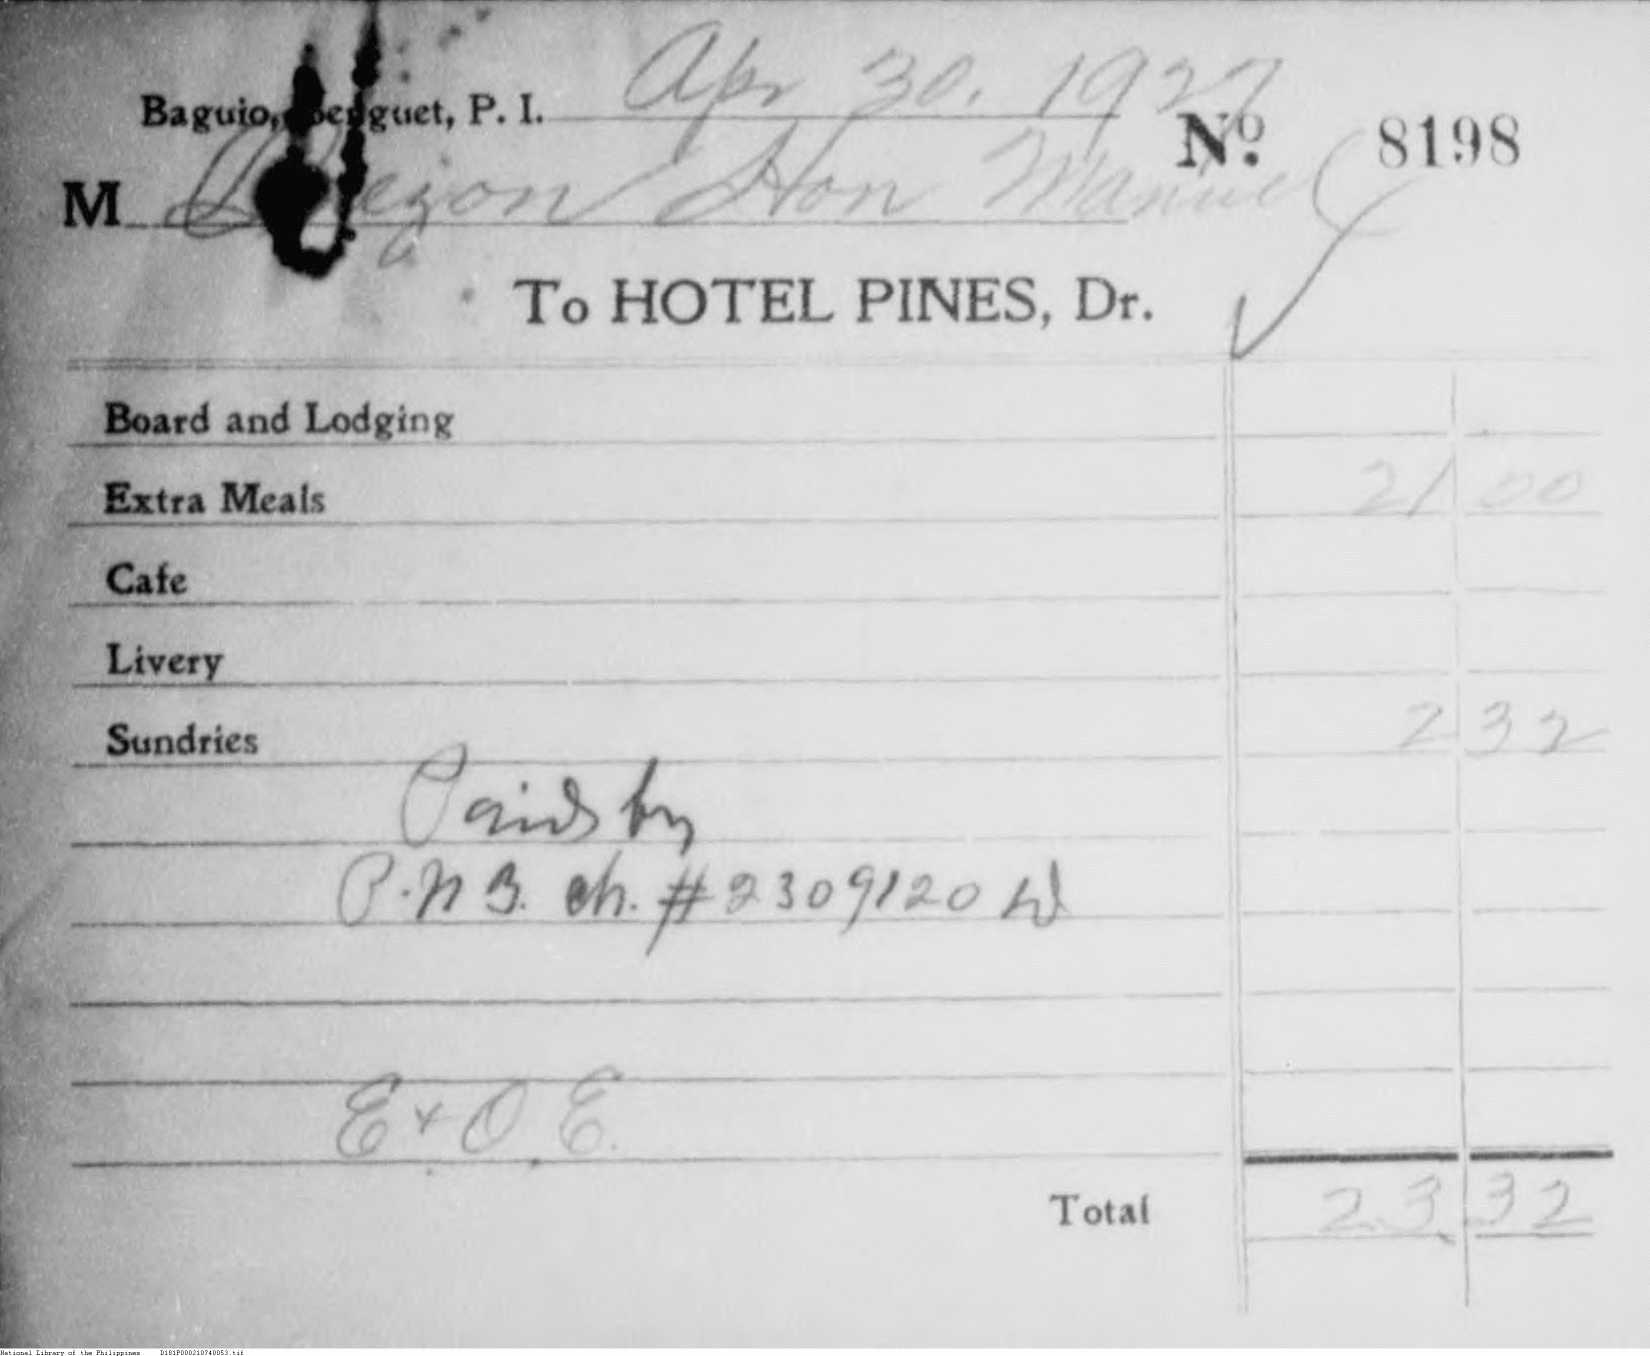 Apr 30, 1927
Baguio, Benguet, P. I.
Nº 8198
M Quezon Hon Manuel
To HOTEL PINES, Dr.
Board and Lodging
Extra Meals 21 00
Cafe
Livery
Sundries 2 32
Paid by
P.N B. ch. #2309120 W
E & O E.
Total 23 32
National Library of the Philippines D181P000210740053.tif